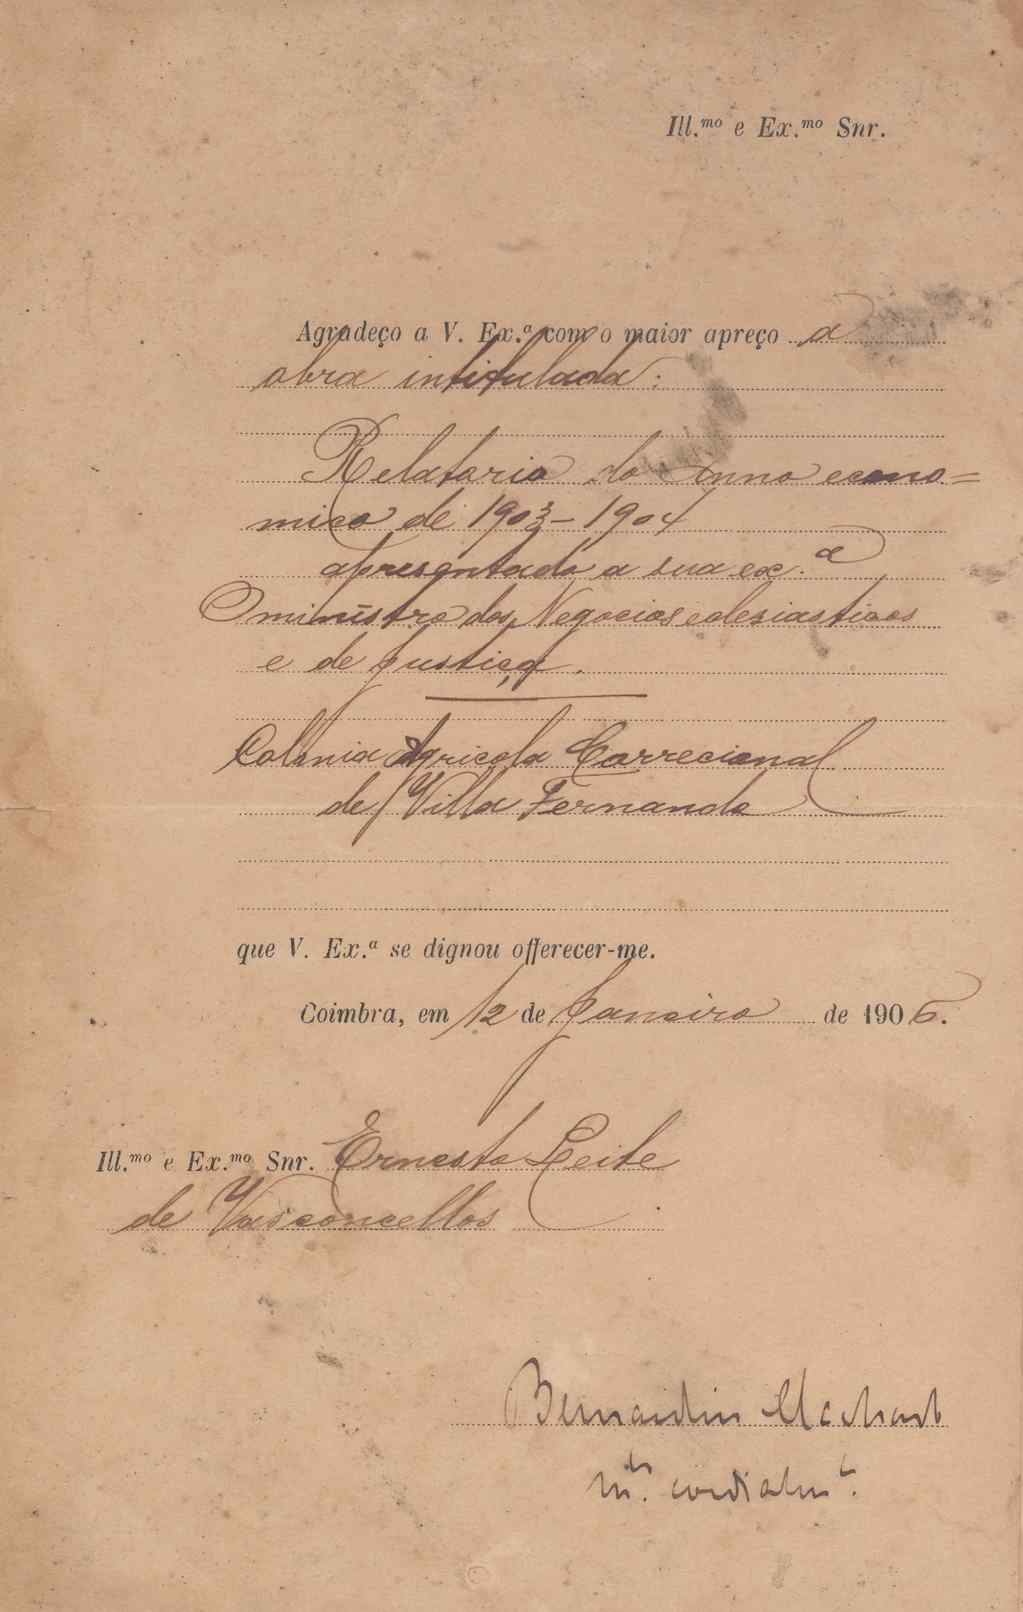 Ill.mo e Ex.mo Snr.
Agradeço a V. Ex.a com o maior apreço a
obra intitulada:
Relatorio do anno econo=
mico de 1903-1904
apresentado a sua ex.a
O ministro dos Negocios eclesiasticos
e de justiça.
Colonia Agricola Correcional
de Villa Fernando
que V. Ex.a se dignou offerecer-me.
Coimbra, em 12 de Janeiro de 1906.
Ill.mo e Ex.mo Snr. Ernesto Leite
de Vasconcellos
Bernardino Machado
m.to cordialm.te